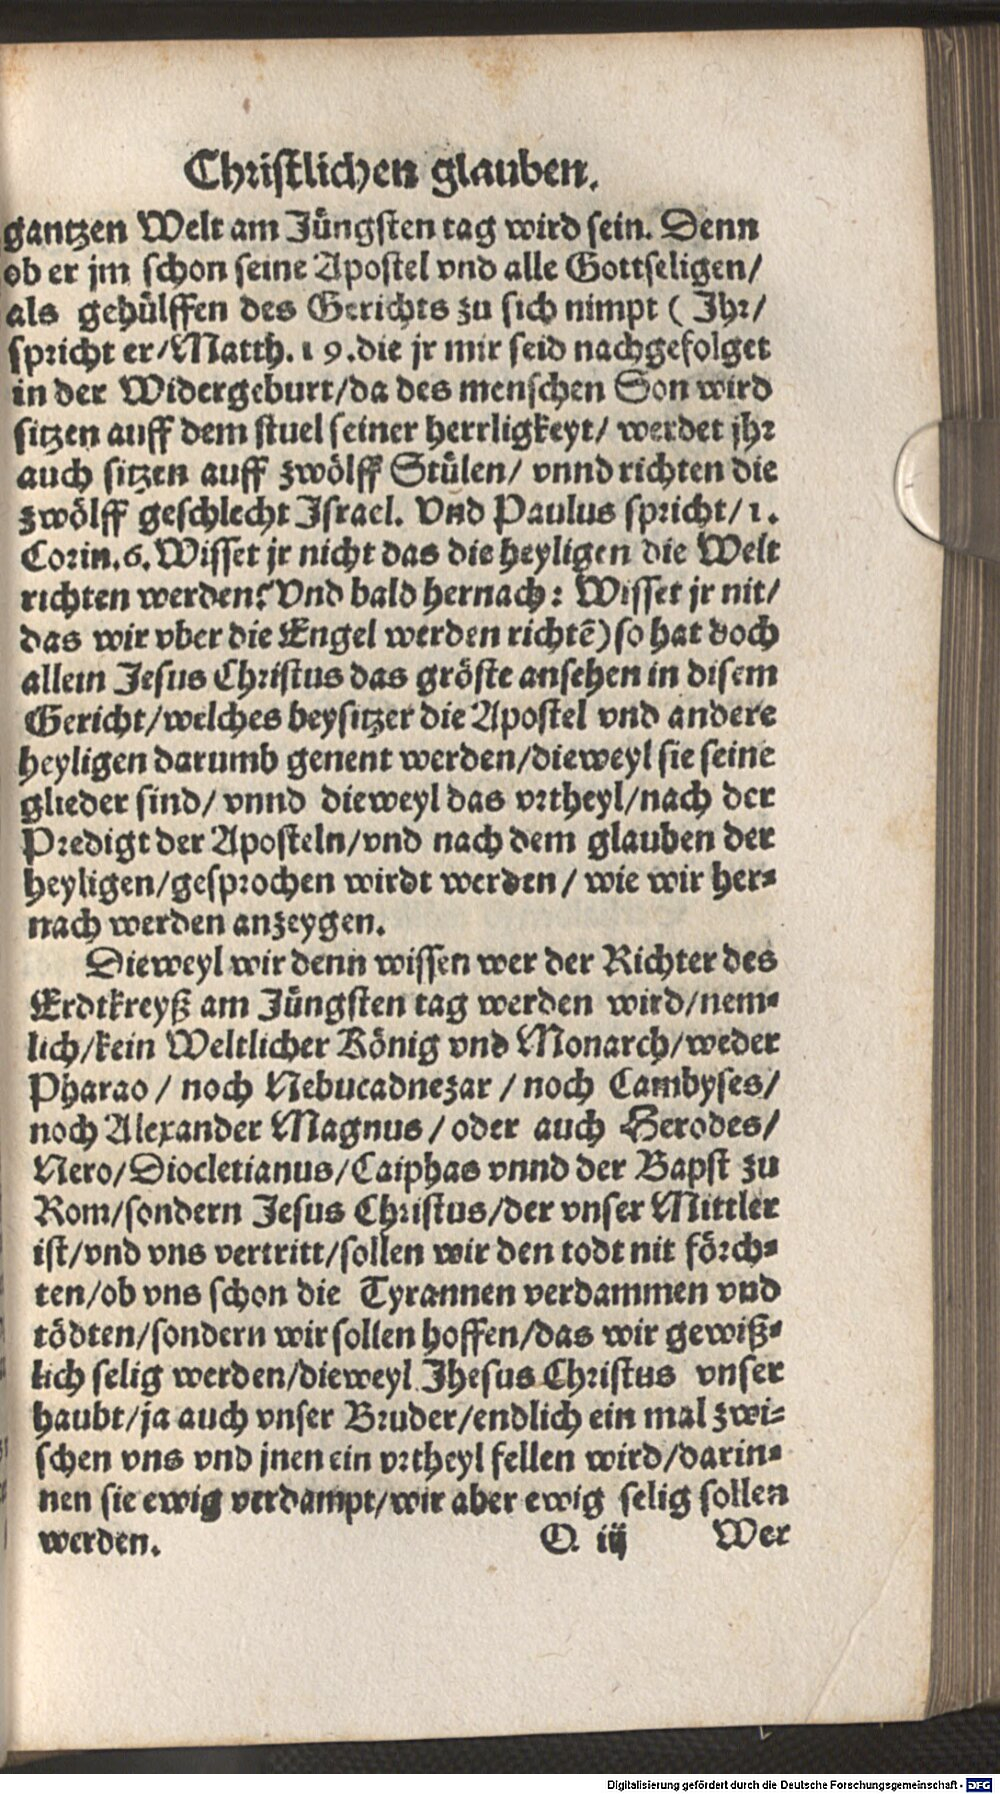 Christlichen glauben.
gantzen Welt am Jüngsten tag wird sein. Denn
ob er jm schon seine Apostel vnd alle Gottseligen/
als gehülffen des Gerichts zu sich nimpt ( Ihr/
spricht er/Matth. 19. die jr mir seid nachgefolget
in der Widergeburt/da des menschen Son wird
sitzen auff dem stuel seiner herrligkeyt/ werdet jhr
auch sitzen auff zwölff Stülen/ vnnd richten die
zwölff geschlecht Israel. Vnd Paulus spricht/1.
Corin.6. Wisset jr nicht das die heyligen die Welt
richten werden? Vnd bald hernach: Wisset jr nit/
das wir vber die Engel werden richtē) so hat doch
allein Jesus Christus das gröste ansehen in disem
Gericht/welches beysitzer die Apostel vnd andere
heyligen darumb genent werden/dieweyl sie seine
glieder sind/ vnnd dieweyl das vrtheyl/nach der
Predigt der Aposteln/vnd nach dem glauben der
heyligen/gesprochen wirdt werden/ wie wir her-
nach werden anzeygen.
Dieweyl wir denn wissen wer der Richter des
Erdtkreyß am Jüngsten tag werden wird/nem-
lich/kein Weltlicher König vnd Monarch/weder
Pharao / noch Nebucadnezar / noch Cambyses/
noch Alexander Magnus / oder auch Herodes/
Nero/Diocletianus/Caiphas vnnd der Bapst zu
Rom/sondern Jesus Christus/der vnser Mittler
ist/vnd vns vertritt/sollen wir den todt nit förch-
ten/ob vns schon die Tyrannen verdammen vnd
tödten/sondern wir sollen hoffen/das wir gewiß-
lich selig werden/dieweyl Jhesus Christus vnser
haubt/ja auch vnser Bruder/endlich ein mal zwi-
schen vns vnd jnen ein vrtheyl fellen wird/darin-
nen sie ewig verdampt/wir aber ewig selig sollen
werden. O iij Wer
Digitalisierung gefördert durch die Deutsche Forschungsgemeinschaft - DFG